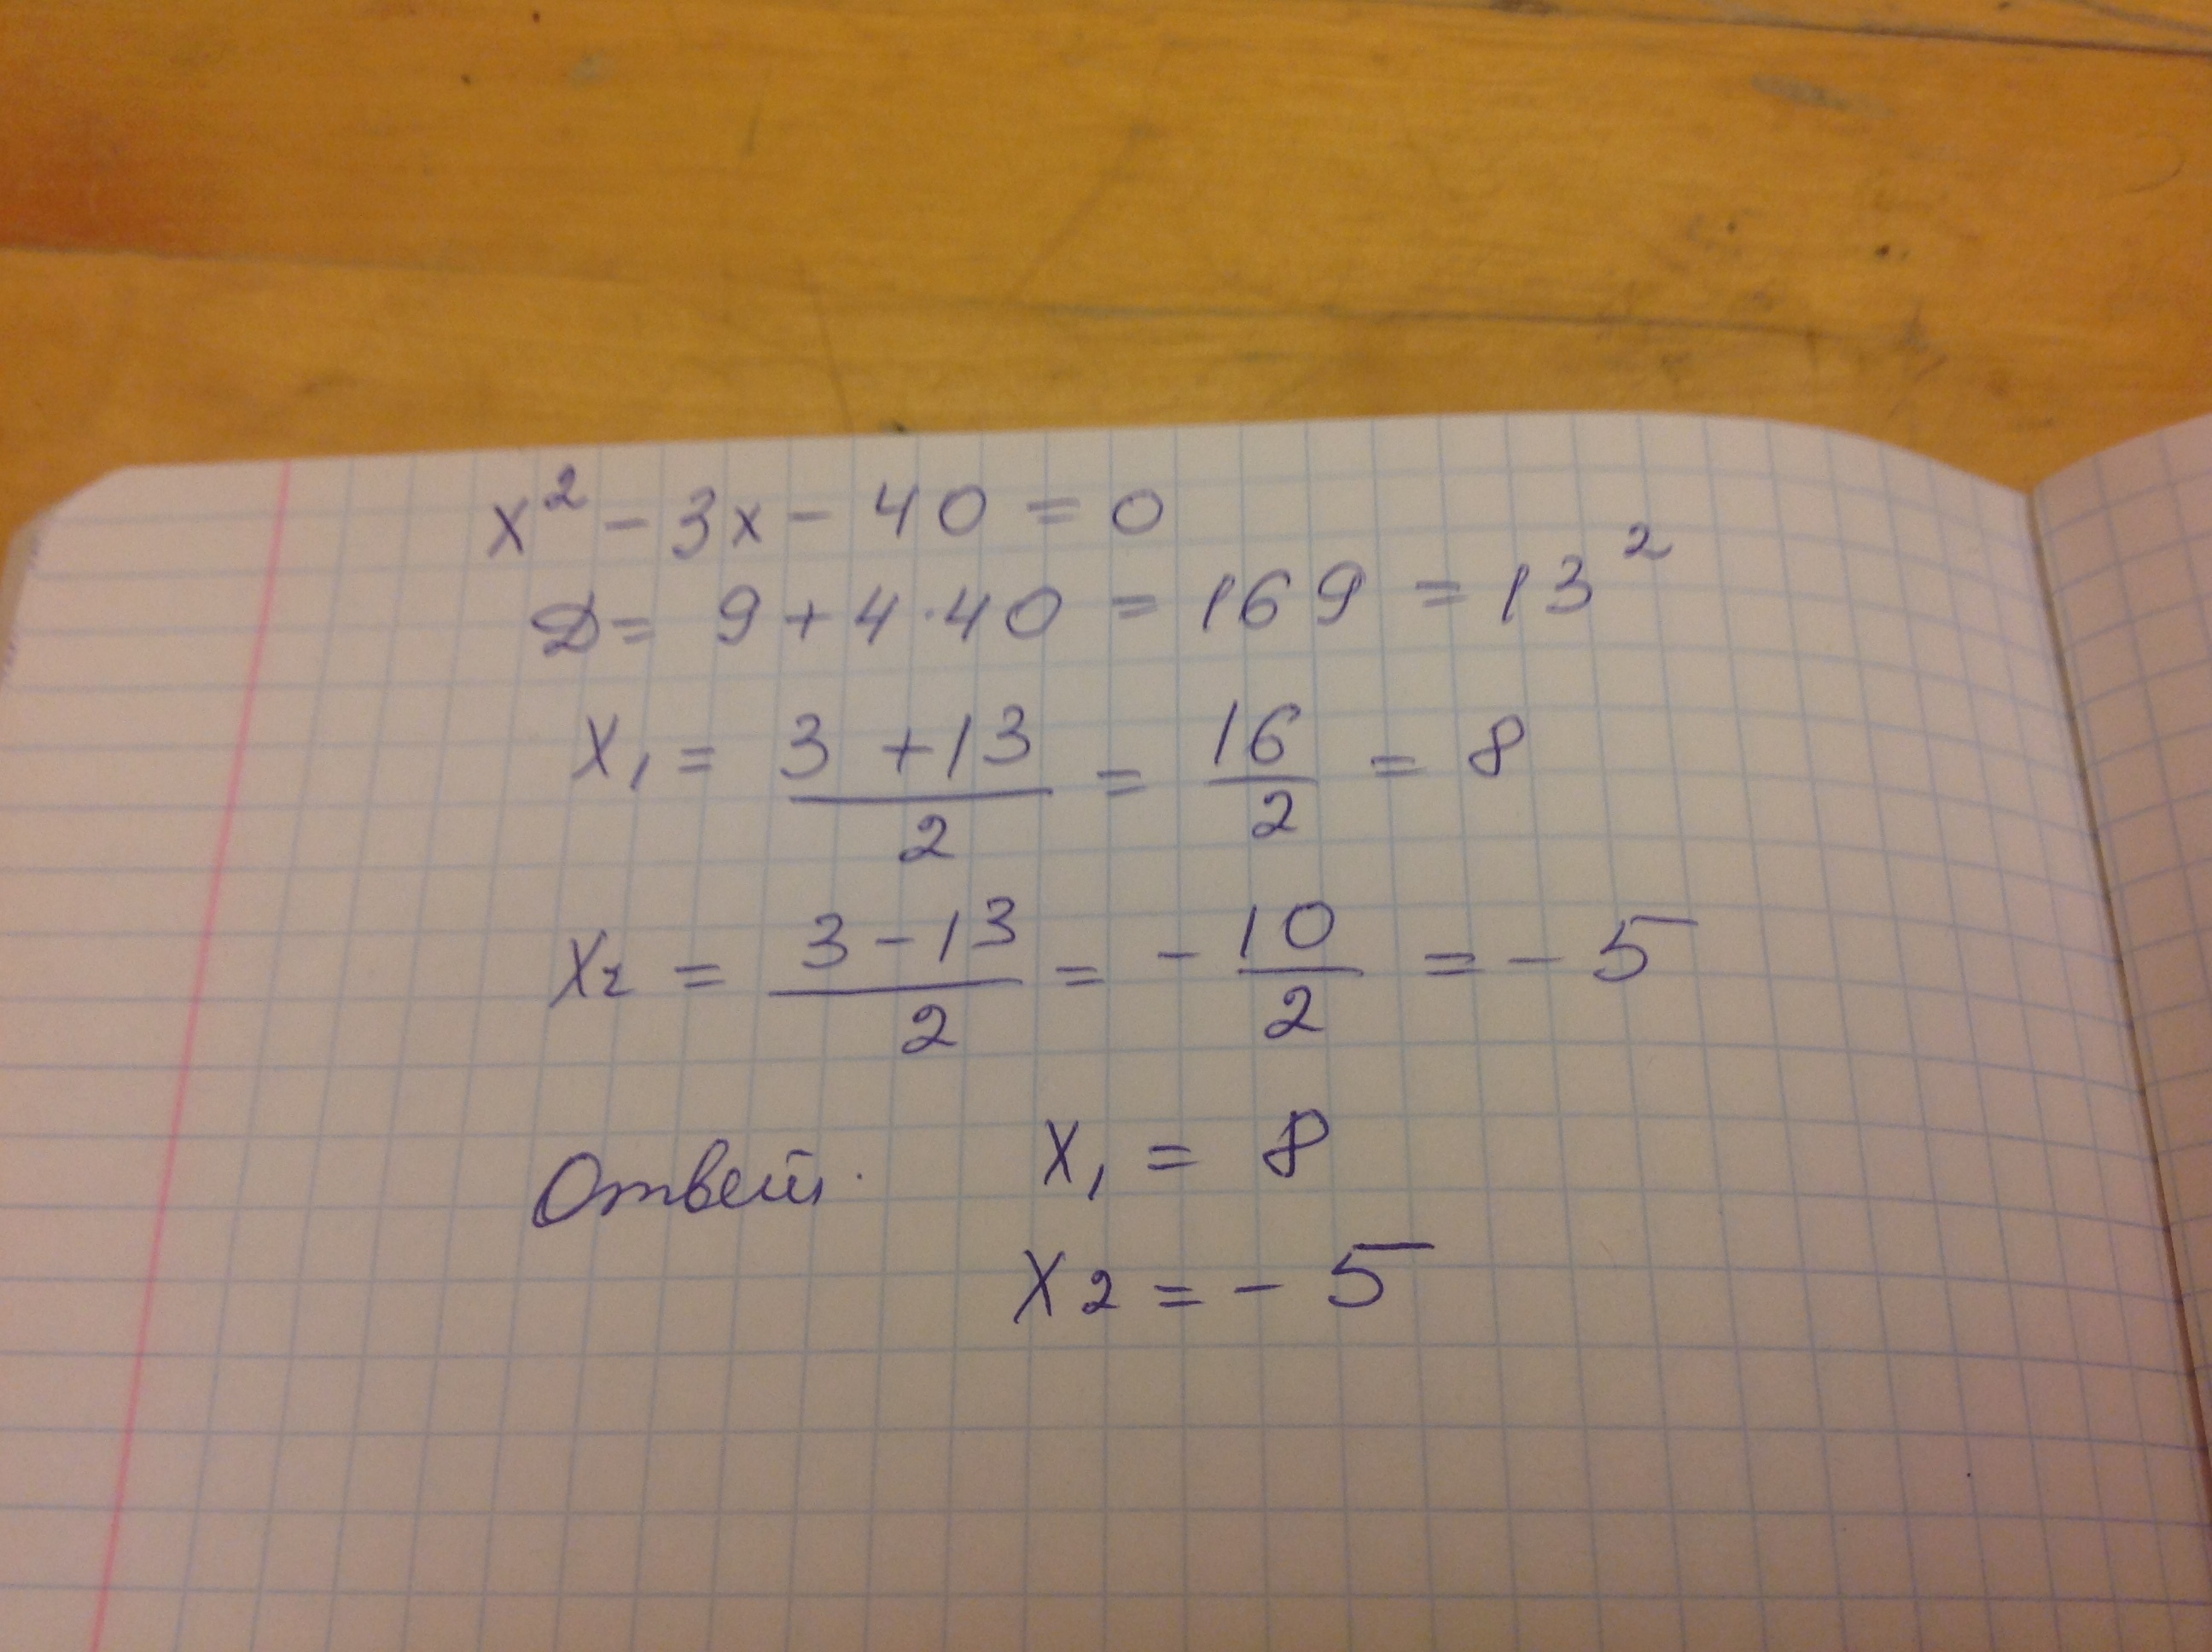 x² - 3x - 40 = 0
D = 9 + 4·40 = 169 = 13²
x₁ = (3 + 13)/2 = 16/2 = 8
x₂ = (3 - 13)/2 = - 10/2 = - 5
Ответ. x₁ = 8
x₂ = - 5